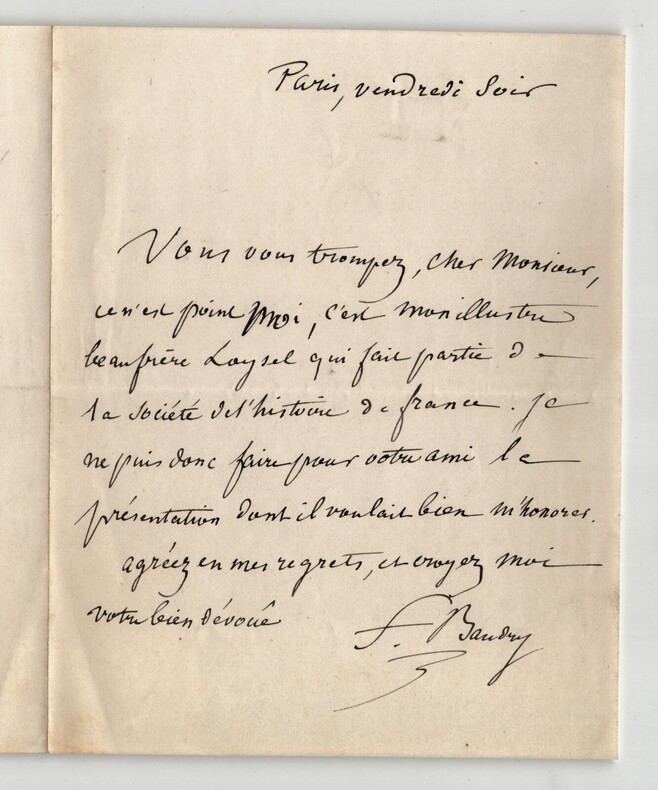 Paris, vendredi soir
Vous vous trompez, cher Monsieur,
ce n'est point moi, c'est mon illustre
beau frère Loysel qui fait partie de
la société de l'histoire de france. je
ne puis donc faire pour votre ami la
présentation dont il voulait bien m'honorer.
agréez en mes regrets, et croyez moi
votre bien dévoué
F. Baudry